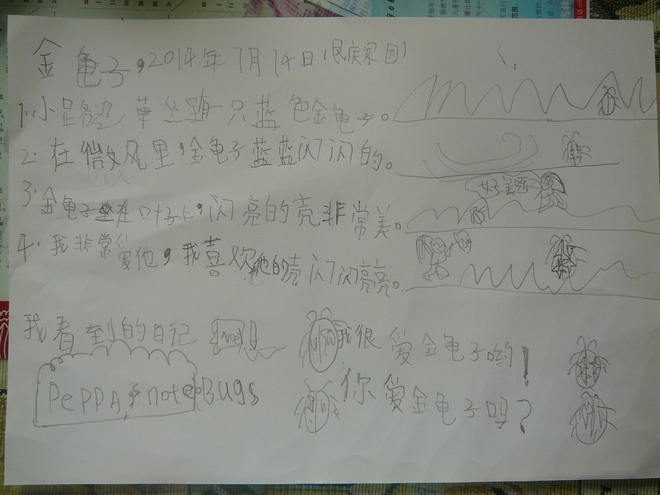 金龟子,2014年7月14日(民族家园)
1.小路边 草丛 只蓝色金龟子。
2.在微风里,金龟子蓝蓝闪闪的。
3.金龟子坐在叶子上,闪亮的壳非常美。
好美
4.我非常爱他,我喜欢他的壳闪闪亮亮。
我看到的日记
我很爱金龟子哟!
PePPA,s noteBugs
你爱金龟子吗?